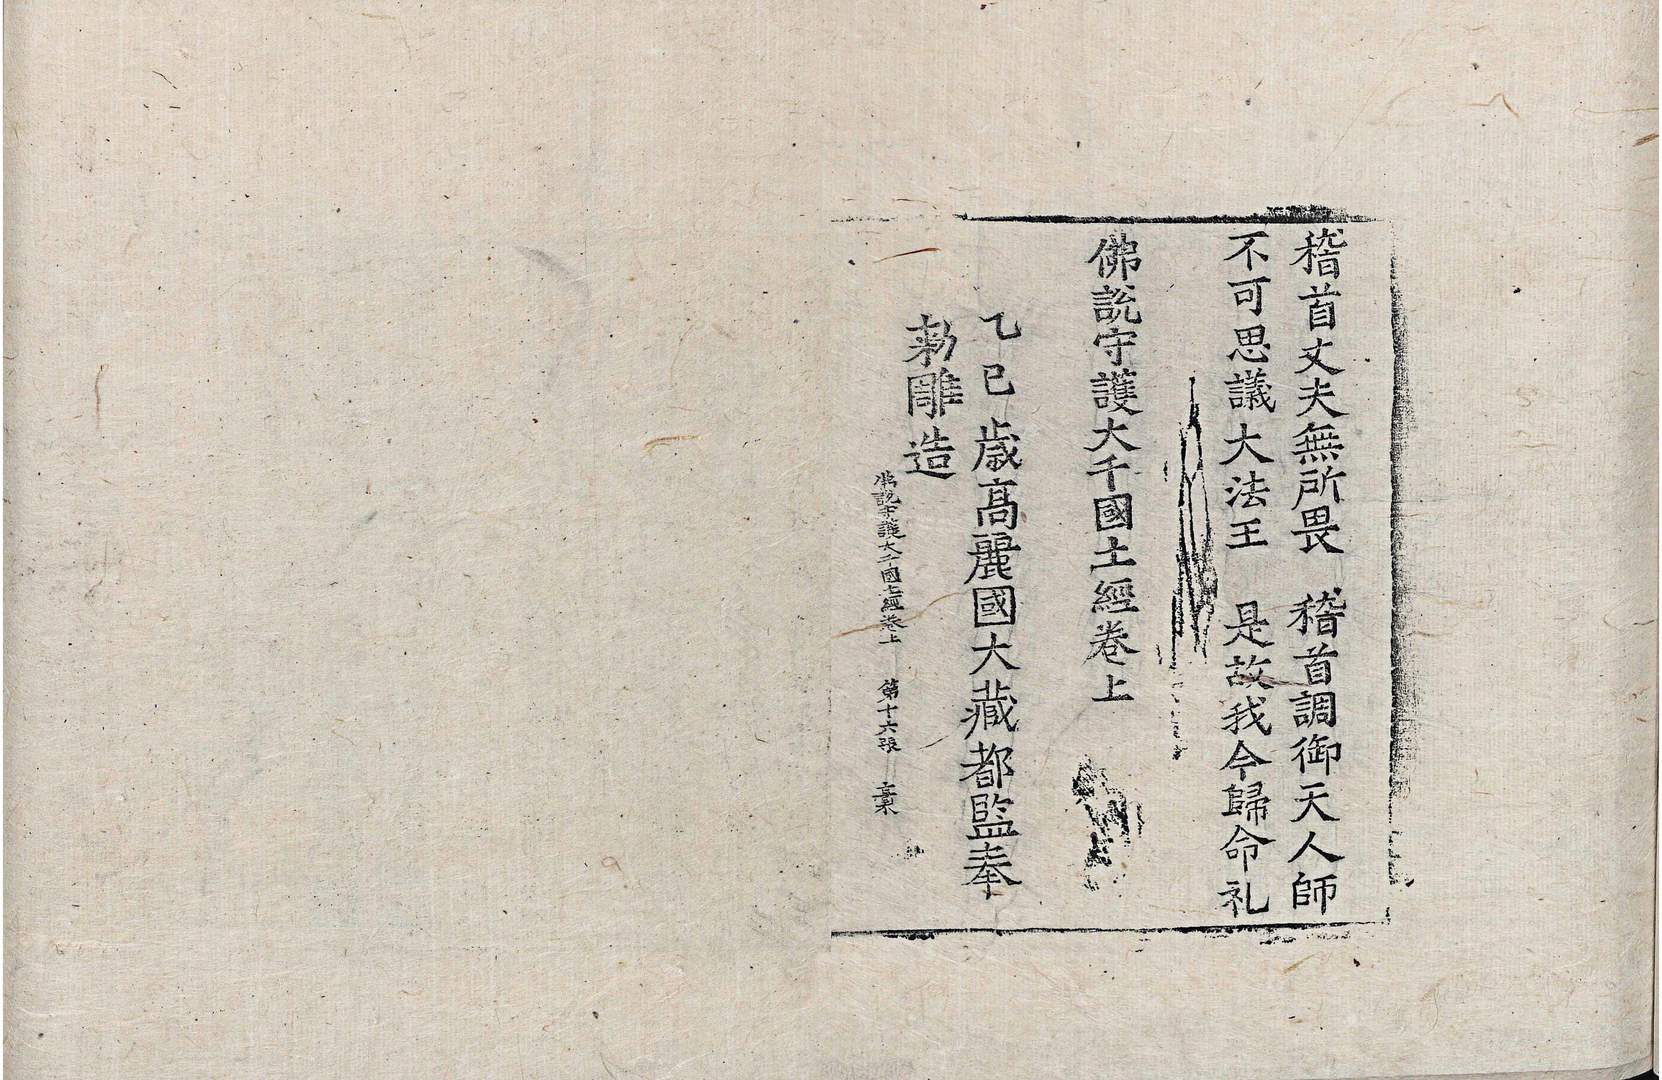 稽首丈夫無所畏　稽首調御天人師
不可思議大法王　是故我今歸命礼
佛說守護大千國土經卷上
乙巳歲高麗國大藏都監奉
勑雕造
佛說守護大千國土經卷上　第十六張